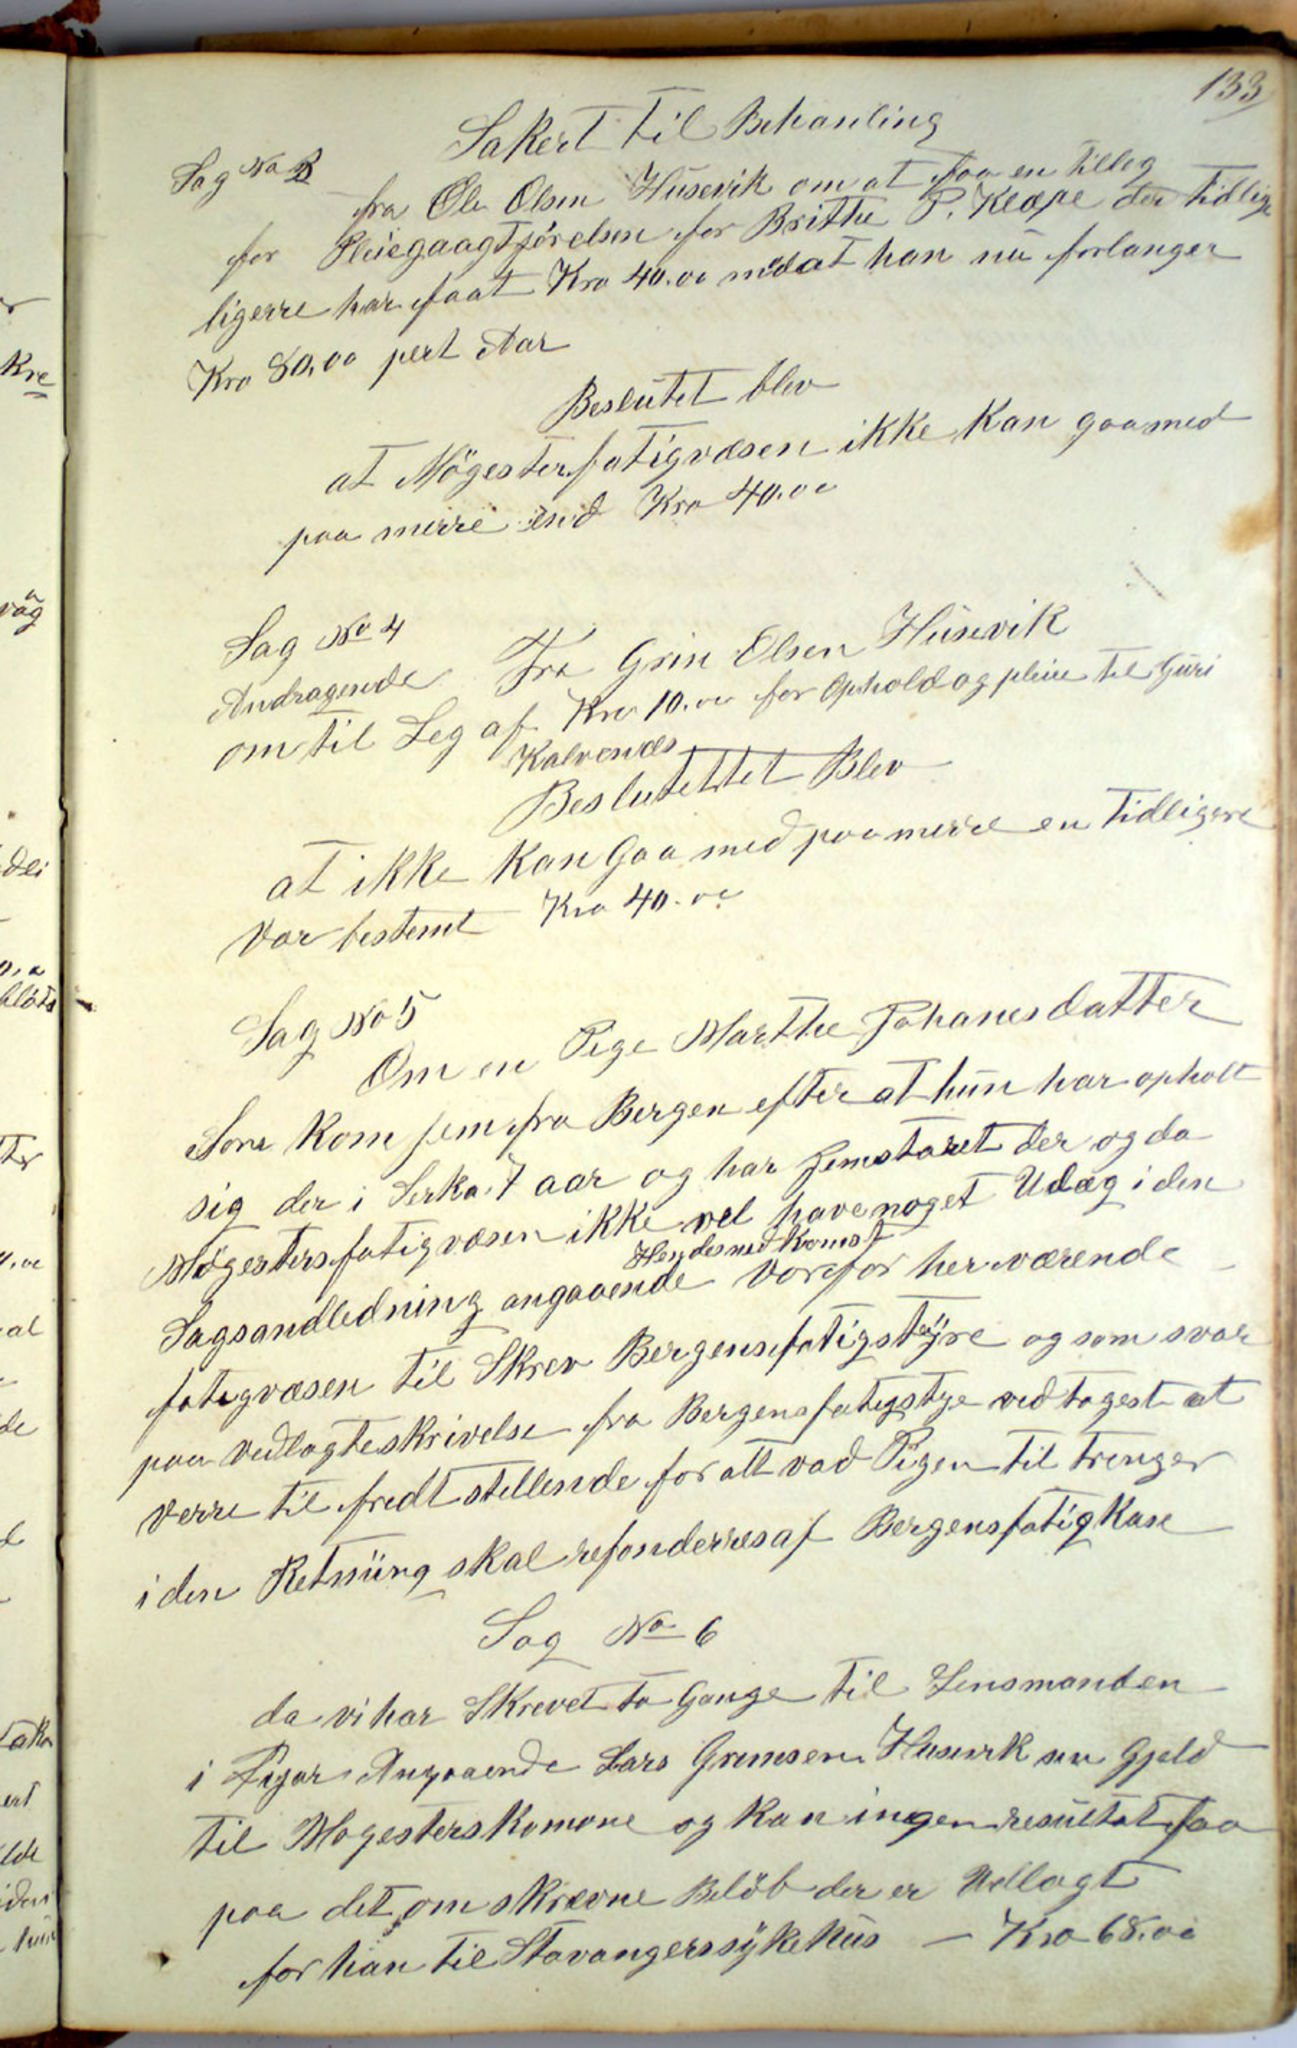 133
Sakert til Behanling
Sag No 3
fra Ole Olsen Husevik om at faa en tilleg
for Pleiegaagtjørelsen for Britthe P. Kleppe der tidlige
ligerre har faat Kro 40.00 medat han nu forlanger
Kro 80.00 pert Aar
Beslutet blev
at Møgster fatigvæsen ikke kan gaamed
paa merre end Kro 40.00
Sag No 4
Andragende Fra Grim Olsen Husevik
om til Leg af Kro 10.00 for Ophold og pleie til Guri
Kalvenæs
Beslutettet Blev
at ikke kan Gaa med paa merre en tidligere
Var bestemt Kro 40.00
Sag No 5
Om en Pige Marthe Johanesdatter
Som kom jem fra Bergen efter at hun har opholt
sig der i Serka 7 aar og har jemstaret der og da
Møgsters fatigvæsen ikke vel have noget Udæg i den
Hendes nedkomst
Sagsandledning angaaende Vorefor herværende
fatigvæsen til Skrev Bergens fatigstyre og som svar
paa vedlagteskrivelse fra Bergens fatigstye vedtagest at
verre til fredtstellende for alt vad Pigen til trenger
i den Retning skal refonderres af Bergens fatigkase
Sag No 6
da vi har Skrevet to Gange til Lensmanden
i Angaaende Lars Grimsen Husevik sin Gjeld
til Mogesterskomone og kan ingen resultat faa
paa det om skrevne Beløb der er Udlagt
for han til Stavangerssykehus — Kro 68.00